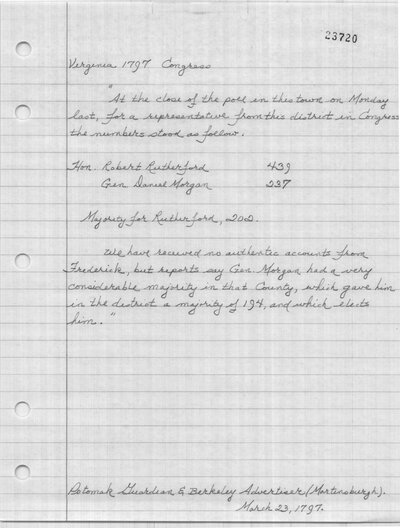 23720
Virginia 1797 Congress
"At the close of the poll in this town on Monday
last, for a representative from this district in Congress
the numbers stood as follow.
Hon. Robert Rutherford 439
Gen. Daniel Morgan 237
Majority for Rutherford, 202.
We have received no authentic accounts from
Frederick, but reports say Gen. Morgan had a very
considerable majority in that County, which gave him
in the district a majority of 194, and which elects
him."
Potomak Guardian & Berkeley Advertiser (Martinsburgh).
March 23, 1797.